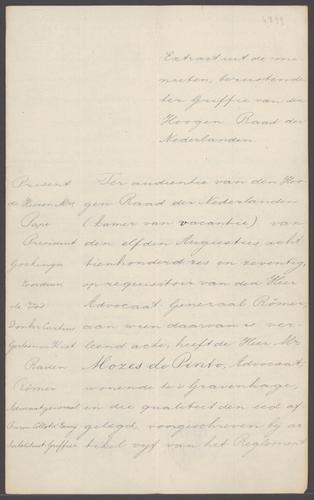 Extract uit de mi-
nuten, berustende
ter Griffie van den
Hoogen Raad der
Nederlanden
Present
de Heeren Mrs
Pape
President
Gockinga
Coninck
de Vos
Raden
Römer
Advocaat generaal
Ter audientie van den Hoo-
gen Raad der Nederlanden
(Kamer van vacantie) van
den elfden Augustus acht
tienhonderd zes en zeventig,
op requisitoir van den Heer
Advocaat Generaal Römer,
aan wien daarvan is ver-
leend acte, heeft de Heer Mr
Mozes de Pinto, Advocaat,
wonende te 's Gravenhage,
in die qualiteit den eed af-
gelegd, voorgeschreven bij ar-
tikel vijf van het Reglement